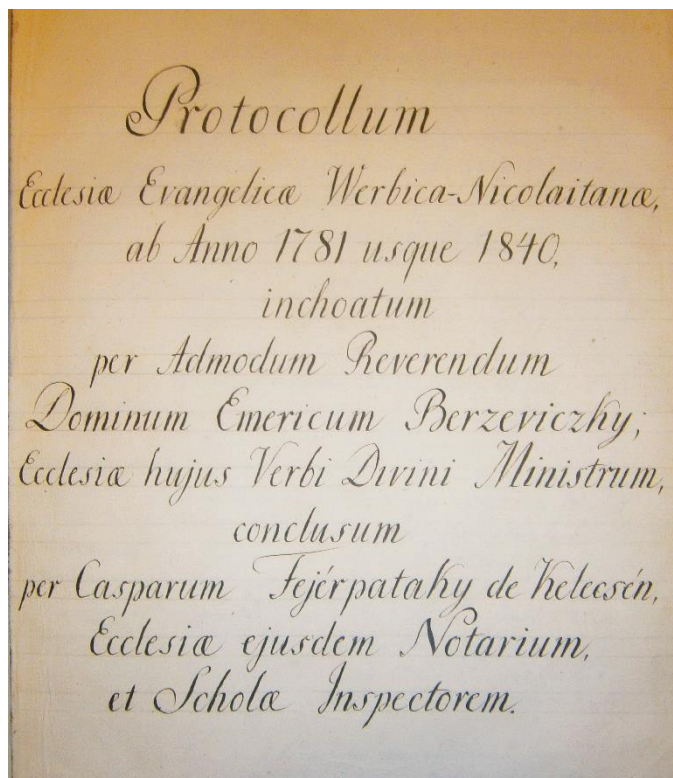 Protocollum
Ecclesiæ Evangelicæ Werbica-Nicolaitanæ,
ab Anno 1781 usque 1840,
inchoatum
per Admodum Reverendum
Dominum Emericum Berzeviczky;
Ecclesiæ hujus Verbi Divini Ministrum,
conclusum
per Casparum Fejérpataky de Kelecsén,
Ecclesiæ ejusdem Notarium,
et Scholæ Inspectorem.